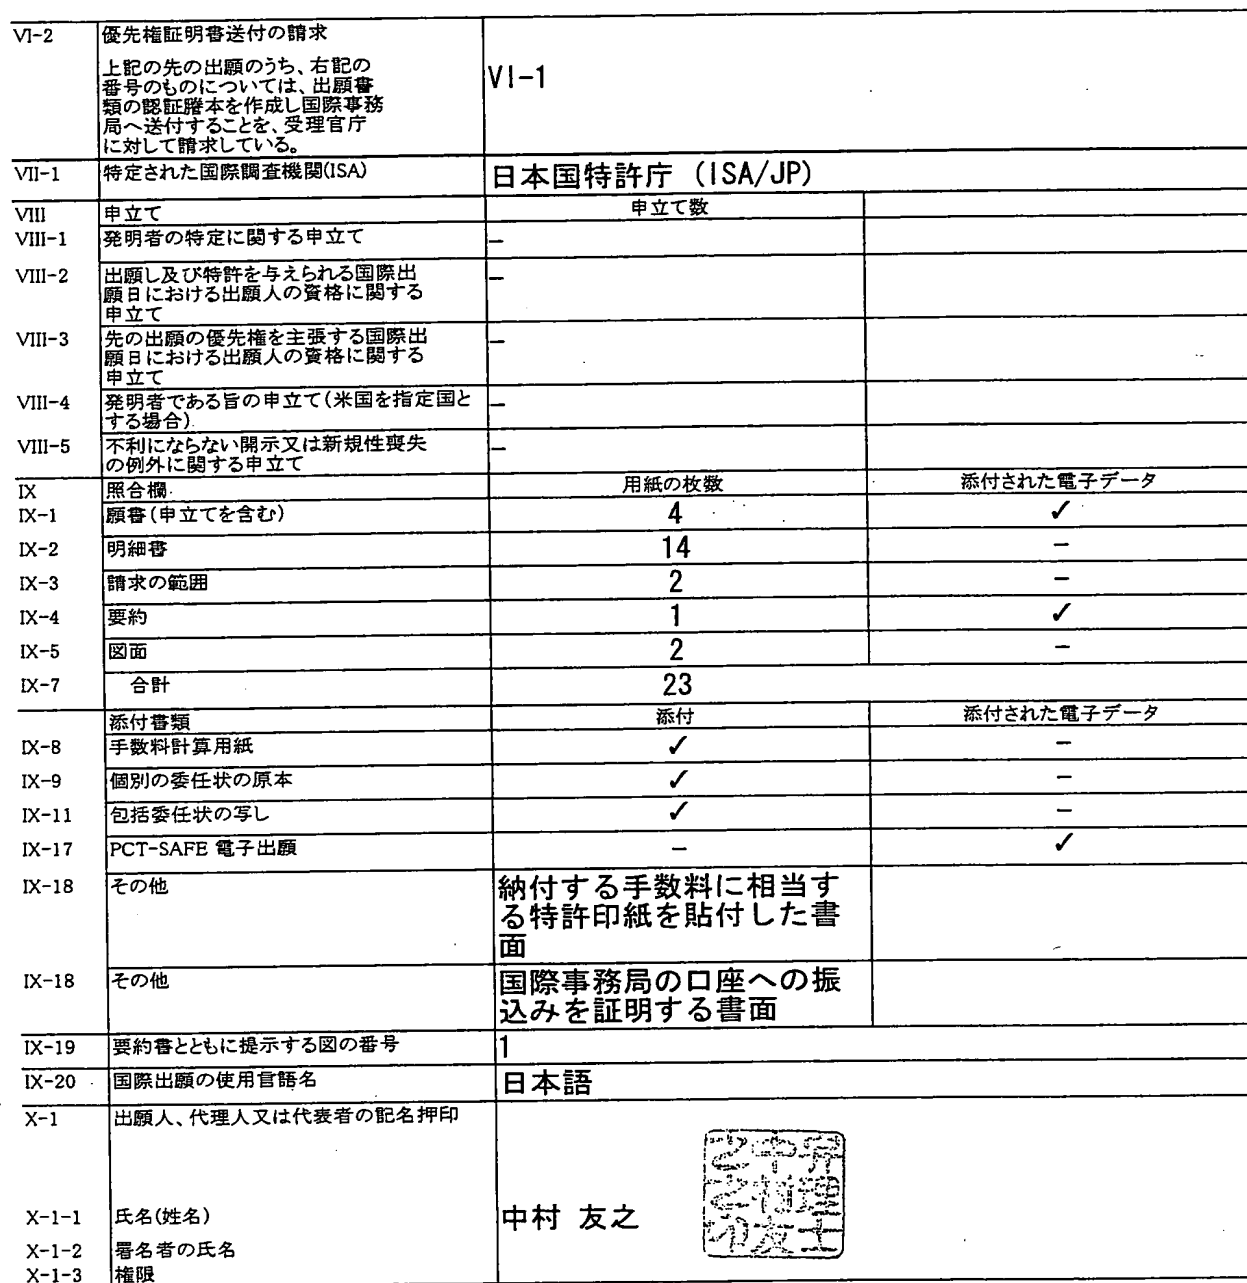 VI-2 優先権証明書送付の請求
上記の先の出願のうち、右記の
番号のものについては、出願書
類の認証謄本を作成し国際事務
局へ送付することを、受理官庁
に対して請求している。
VI-1
VII-1 特定された国際調査機関(ISA) 日本国特許庁 (ISA/JP)
VIII 申立て 申立て数
VIII-1 発明者の特定に関する申立て –
VIII-2 出願し及び特許を与えられる国際出 –
願日における出願人の資格に関する
申立て
VIII-3 先の出願の優先権を主張する国際出 –
願日における出願人の資格に関する
申立て
VIII-4 発明者である旨の申立て(米国を指定国と –
する場合)
VIII-5 不利にならない開示又は新規性喪失 –
の例外に関する申立て
IX 照合欄 用紙の枚数 添付された電子データ
IX-1 願書(申立てを含む) 4 ✓
IX-2 明細書 14 –
IX-3 請求の範囲 2 –
IX-4 要約 1 ✓
IX-5 図面 2 –
IX-7 合計 23
添付書類 添付 添付された電子データ
IX-8 手数料計算用紙 ✓ –
IX-9 個別の委任状の原本 ✓ –
IX-11 包括委任状の写し ✓ –
IX-17 PCT-SAFE 電子出願 – ✓
IX-18 その他 納付する手数料に相当す
る特許印紙を貼付した書
面
IX-18 その他 国際事務局の口座への振
込みを証明する書面
IX-19 要約書とともに提示する図の番号 1
IX-20 国際出願の使用言語名 日本語
X-1 出願人、代理人又は代表者の記名押印
弁理士
中村友
之之印
X-1-1 氏名(姓名) 中村 友之
X-1-2 署名者の氏名
X-1-3 権限